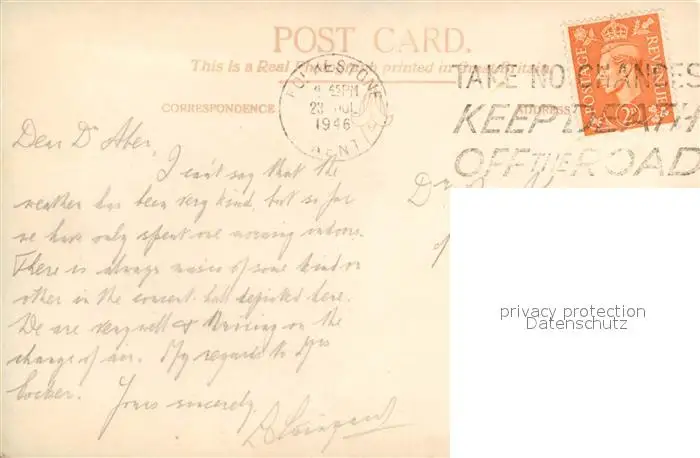 POST CARD.
This is a Real Photograph printed in Great Britain
CORRESPONDENCE
ADDRESS
FOLKESTONE
45 PM
23 JUL
1946
KENT
TAKE NO CHANCES
KEEP DEATH
OFF THE ROAD
POSTAGE REVENUE
2D
Dear Dr
I can't say that the
weather has been very kind but so far
we have only spent one morning indoors.
There is always music of some kind or
other in the concert hall depicted here.
We are very well & thriving on the
change of air. My regards to Mrs
Yours sincerely,
Dr
privacy protection
Datenschutz